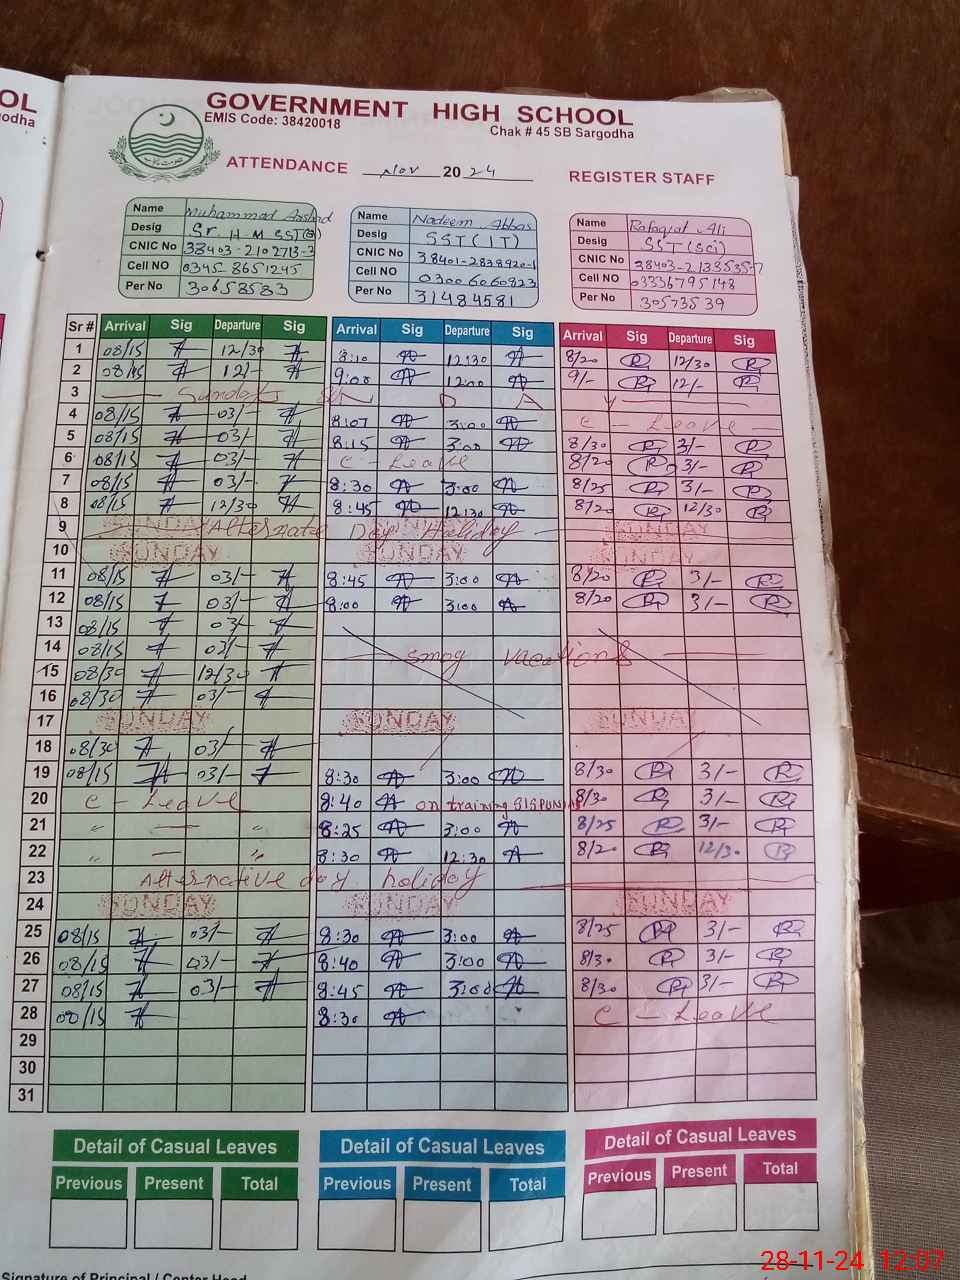 OL
GOVERNMENT HIGH SCHOOL
EMIS Code: 38420018
Chak # 45 SB Sargodha
ATTENDANCE Nov 20 24
REGISTER STAFF
Name Muhammad Arshad
Desig Sr H M SST(G)
CNIC No 38403-2102713-3
Cell NO 0345 8651245
Per No 30658583
Name Nadeem Abbas
Desig SST (IT)
CNIC No 38401-2838920-1
Cell NO 03006060823
Per No 31484581
Name Rafaqat Ali
Desig SST (Sci)
CNIC No 38403-2138535-7
Cell NO 03336795148
Per No 30573539
Sr # Arrival Sig Departure Sig Arrival Sig Departure Sig Arrival Sig Departure Sig
1 08/15 12/30 8:10 12:30 8/20 12/30
2 08/15 12/- 9:00 12:00 9/- 12/-
3 D A Y
4 08/15 03/- 8:07 3:00 C - Leave
5 08/15 03/- 8:15 3:00 8/30 3/-
6 08/15 03/- C - Leave 8/20 3/-
7 08/15 03/- 8:30 3:00 8/25 3/-
8 08/15 12/30 8:45 12:30 8/20 12/30
9 SUNDAY Alternate Day Holiday SUNDAY
10 SUNDAY SUNDAY SUNDAY
11 08/15 03/- 8:45 3:00 8/20 3/-
12 08/15 03/- 8:00 3:00 8/20 3/-
13 08/15 03/-
14 08/15 02/- smog vacations
15 08/30 12/30
16 08/30 03/-
17 SUNDAY SUNDAY SUNDAY
18 08/30 03/-
19 08/15 03/- 8:30 3:00 8/30 3/-
20 C - Leave 8:40 on training 8/30 3/-
21 " — " 8:25 3:00 8/25 3/-
22 " — " 8:30 12:30 8/20 12/30
23 Alternative day holiday
24 SUNDAY SUNDAY SUNDAY
25 08/15 03/- 8:30 3:00 8/25 3/-
26 08/15 03/- 8:40 3:00 8/30 3/-
27 08/15 03/- 8:45 3:00 8/30 3/-
28 08/15 8:30 C - Leave
29
30
31
Detail of Casual Leaves Detail of Casual Leaves Detail of Casual Leaves
Previous Present Total Previous Present Total Previous Present Total
Signature of Principal / Center Head
28-11-24 12:07